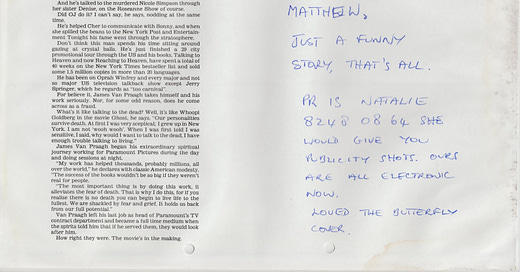 And he's talked to the murdered Nicole Simpson through
her sister Denise, on the Roseanne Show of course.
Did OJ do it? I can't say, he says, nodding at the same
time.
He's helped Cher to communicate with Sonny, and when
she spilled the beans to the New York Post and Entertain-
ment Tonight his fame went through the stratosphere.
Don't think this man spends his time sitting around
gazing at crystal balls. He's just finished a 29 city
promotional tour through the US and his books, Talking to
Heaven and now Reaching to Heaven, have spent a total of
40 weeks on the New York Times bestseller list and sold
some 1.5 million copies in more than 20 languages.
He has been on Oprah Winfrey and every major and not
so major US television talkback show except Jerry
Springer, which he regards as "too carnival".
For believe it, James Van Praagh takes himself and his
work seriously. Nor, for some odd reason, does he come
across as a fraud.
What's it like talking to the dead? Well, it's like Whoopi
Goldberg in the movie Ghost, he says. "Our personalities
survive death. At first I was very sceptical, I grew up in New
York. I am not 'wooh wooh'. When I was first told I was
sensitive, I said, why would I want to talk to the dead, I have
enough trouble talking to living."
James Van Praagh began his extraordinary spiritual
journey working for Paramount Pictures during the day
and doing sessions at night.
"My work has helped thousands, probably millions, all
over the world," he declares with classic American modesty.
"The success of the books wouldn't be so big if they weren't
real for people.
"The most important thing is by doing this work, it
alleviates the fear of death. That is why I do this, for if you
realise there is no death you can begin to live life to the
fullest. We are shackled by fear and grief. It holds us back
from our full potential."
Van Praagh left his last job as head of Paramount's TV
contract department and became a full time medium when
the spirits told him that if he served them, they would look
after him.
How right they were. The movie's in the making.
MATTHEW,
JUST A FUNNY
STORY, THAT'S ALL.
PR IS NATALIE
8248 0864 SHE
WOULD GIVE YOU
PUBLICITY SHOTS. OURS
ARE ALL ELECTRONIC
NOW.
LOVED THE BUTTERFLY
COVER.